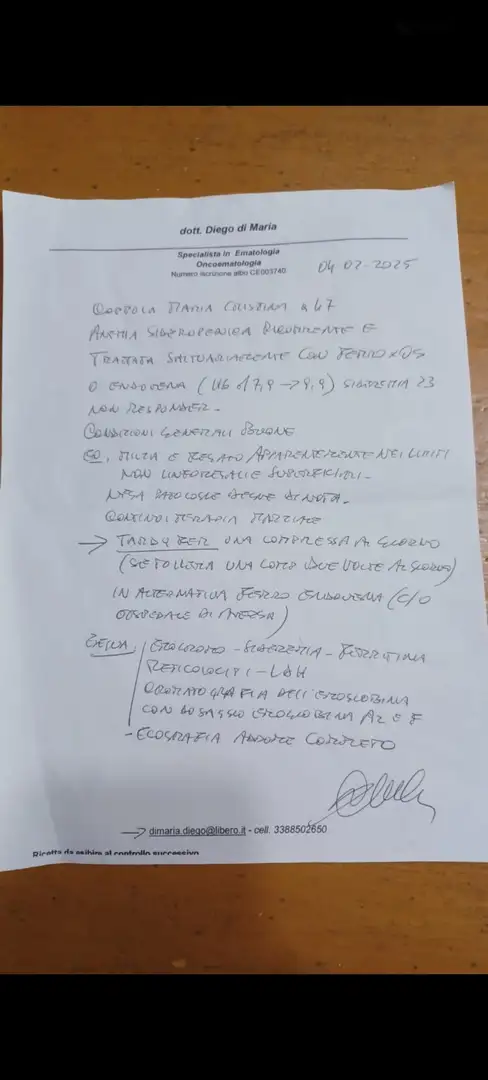 dott. Diego di Maria
Specialista in Ematologia
Oncoematologia
Numero iscrizione albo CE003740
04 02-2025
COPPOLA MARIA CRISTINA a 47
ANEMIA SIDEROPENICA RICORRENTE E
TRATTATA SALTUARIAMENTE CON FERRO x OS
O ENDOVENA (Hb d 7,9 → 9,9) SIDEREMIA 23
NON RESPONDER -
CONDIZIONI GENERALI BUONE
EO, MILZA E FEGATO APPARENTEMENTE NEI LIMITI
NON LINFOADENOPATIE SUPERFICIALI -
NEGA PATOLOGIE DEGNE DI NOTA -
CONTINUI TERAPIA MARZIALE
→ TARDYFER UNA COMPRESSA AL GIORNO
(SE TOLLERA UNA COMP DUE VOLTE AL GIORNO)
IN ALTERNATIVA FERRO ENDOVENA (C/O
OSPEDALE DI AVERSA)
EMOCROMO - SIDEREMIA - FERRITINA
RETICOLOCITI - LDH
CROMATOGRAFIA DELL'EMOGLOBINA
CON DOSAGGIO EMOGLOBINA A2 E F
- ECOGRAFIA ADDOME COMPLETO
→ dimaria.diego@libero.it - cell. 3388502650
Ricetta da esibire al controllo successivo